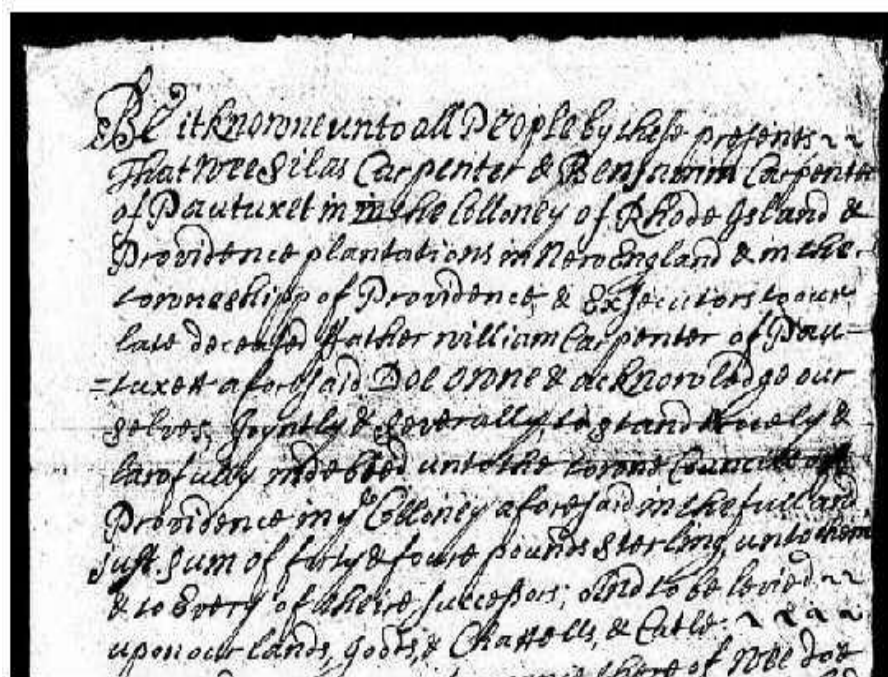 Be it knowne unto all People by these presents
That wee Silas Carpenter & Benjamin Carpenter
of Pautuxet in in the Colloney of Rhode Island &
Providence plantations in New England & in the
towneshipp of Providence, & Exsecutors to our
late deceased ffather william Carpenter of Pau=
=tuxett aforesaid Doe owne & acknowledge our
selves, Joyntly & severally, to stand truely &
lawfully indebted unto the towne Councill of
Providence in ye Colloney aforesaid in the full and
just sum of & foure pounds sterling, unto them
& to Every of theire successors; And to be levied
upon our lands, goods, & Chattells, & Catle
there of wee doe